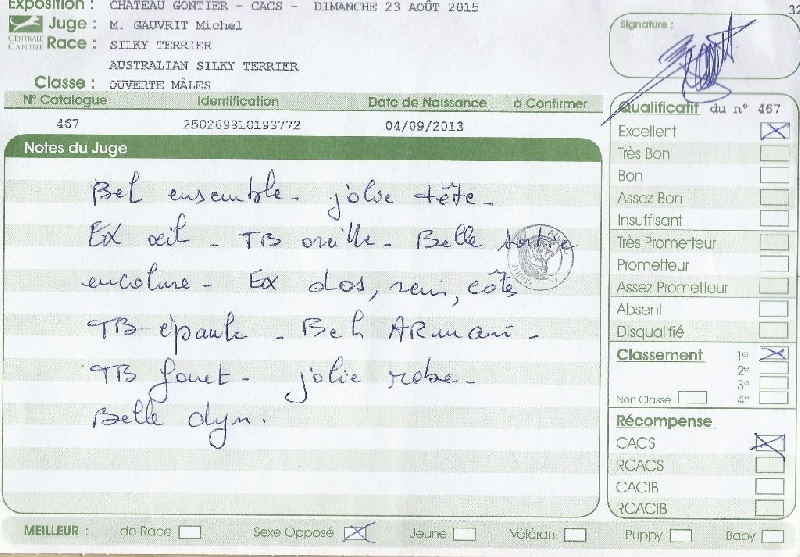 Exposition : CHATEAU GONTIER - CACS - DIMANCHE 23 AOÛT 2015
32
CENTRALE CANINE
Juge : M. GAUVRIT Michel
Race : SILKY TERRIER
AUSTRALIAN SILKY TERRIER
Classe : OUVERTE MÂLES
Signature :
N° Catalogue Identification Date de Naissance à Confirmer
467 250269810193772 04/09/2013
Notes du Juge
Bel ensemble - jolie tête -
Ex œil - TB oreille - Belle sortie
encolure - Ex dos, rein, côte
TB épaule - Bel
TB fouet - jolie robe -
Belle dyn.
Qualificatif du n° 467
Excellent
Très Bon
Bon
Assez Bon
Insuffisant
Très Prometteur
Prometteur
Assez Prometteur
Absent
Disqualifié
Classement 1er
2e
3e
Non Classé 4e
Récompense
CACS
RCACS
CACIB
RCACIB
MEILLEUR : de Race Sexe Opposé Jeune Vétéran Puppy Baby